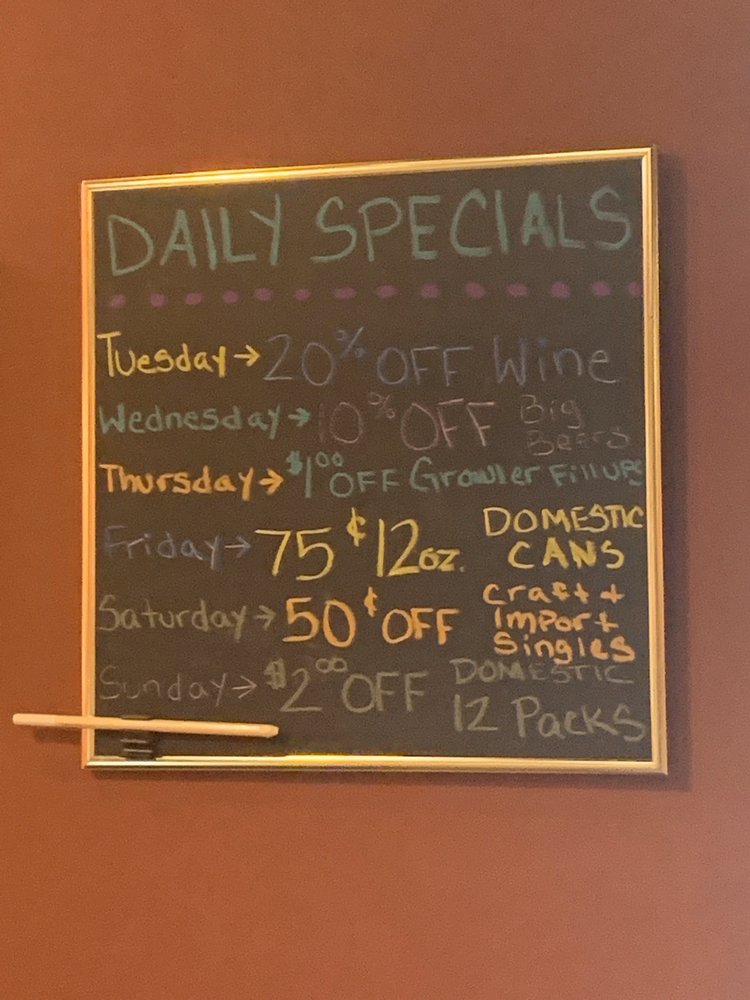 DAILY SPECIALS
Tuesday → 20% OFF Wine
Wednesday → 10% OFF Big Beers
Thursday → $1.00 OFF Growler Fillups
Friday → 75¢ 12oz. DOMESTIC CANS
Saturday → 50¢ OFF Craft + Import Singles
Sunday → $2.00 OFF DOMESTIC 12 Packs